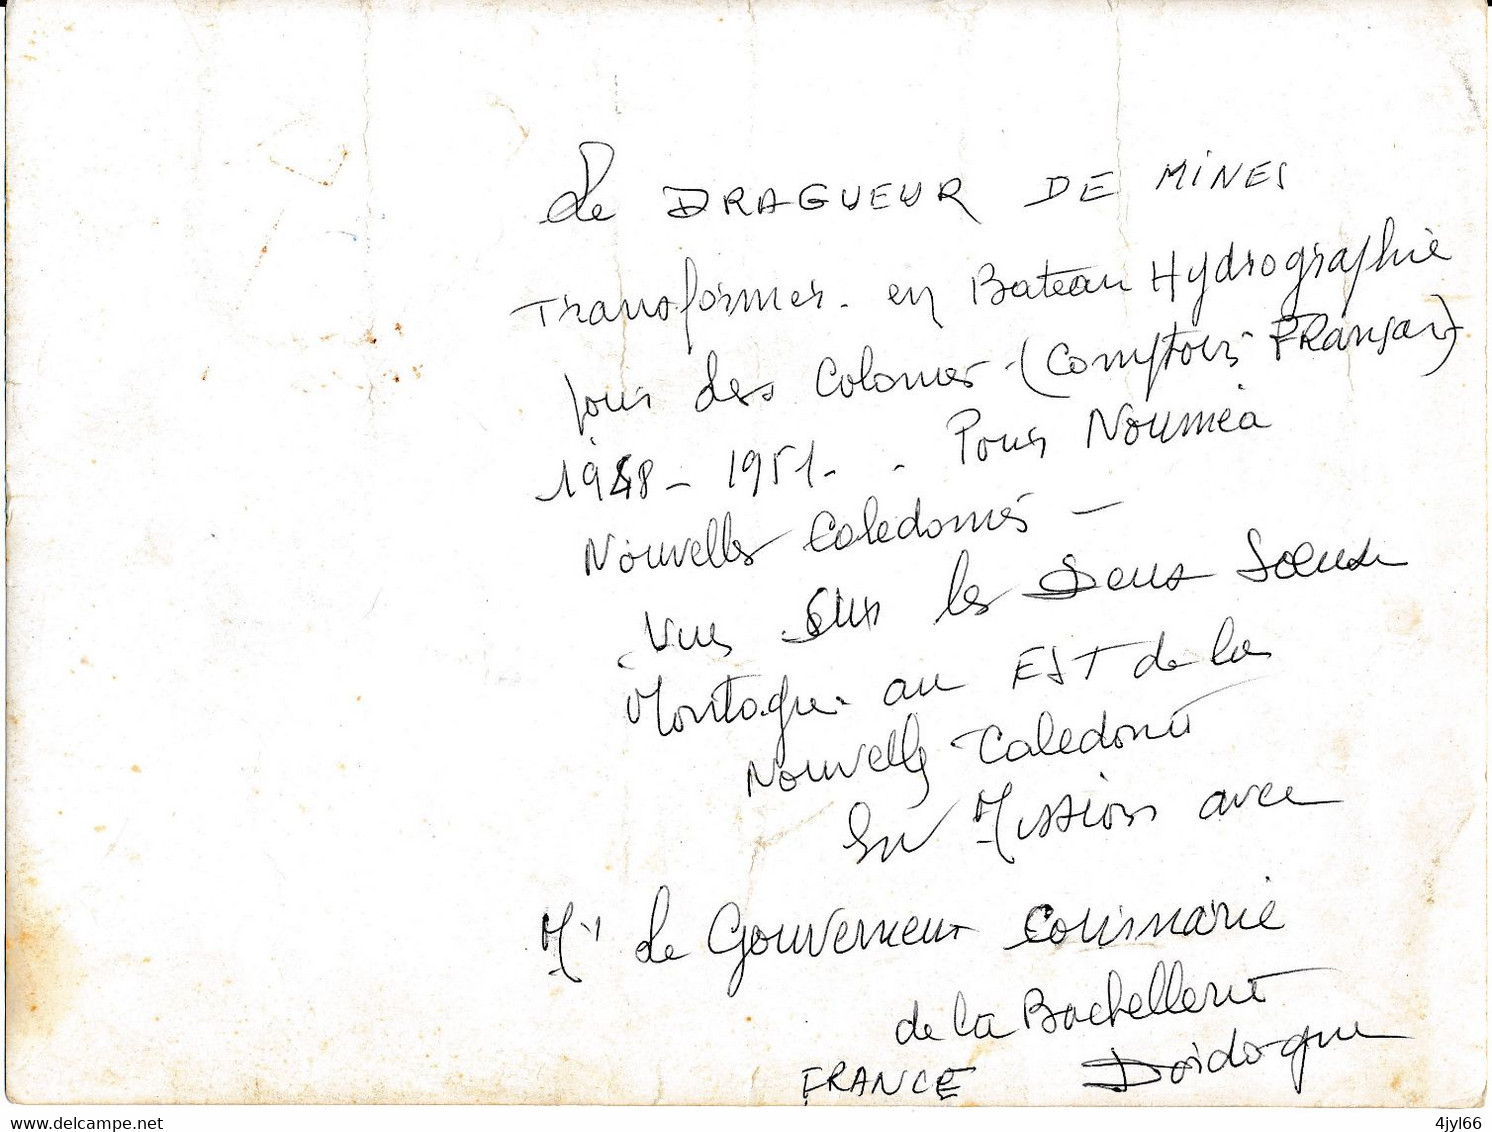 Le DRAGUEUR DE MINES
Transformer. en Bateau Hydrographie
pour des Colonies - (Comptoirs Français)
1948 - 1951 - . Pour Nouméa
Nouvelles Caledonies -
Vue Sur les Deux Soeurs
Montagne au EST de la
Nouvelle Caledonie
En Mission avec
Mr Le Gouverneur Cournarie
de la Bachellerie
FRANCE Doidogne
www.delcampe.net
4jyl66